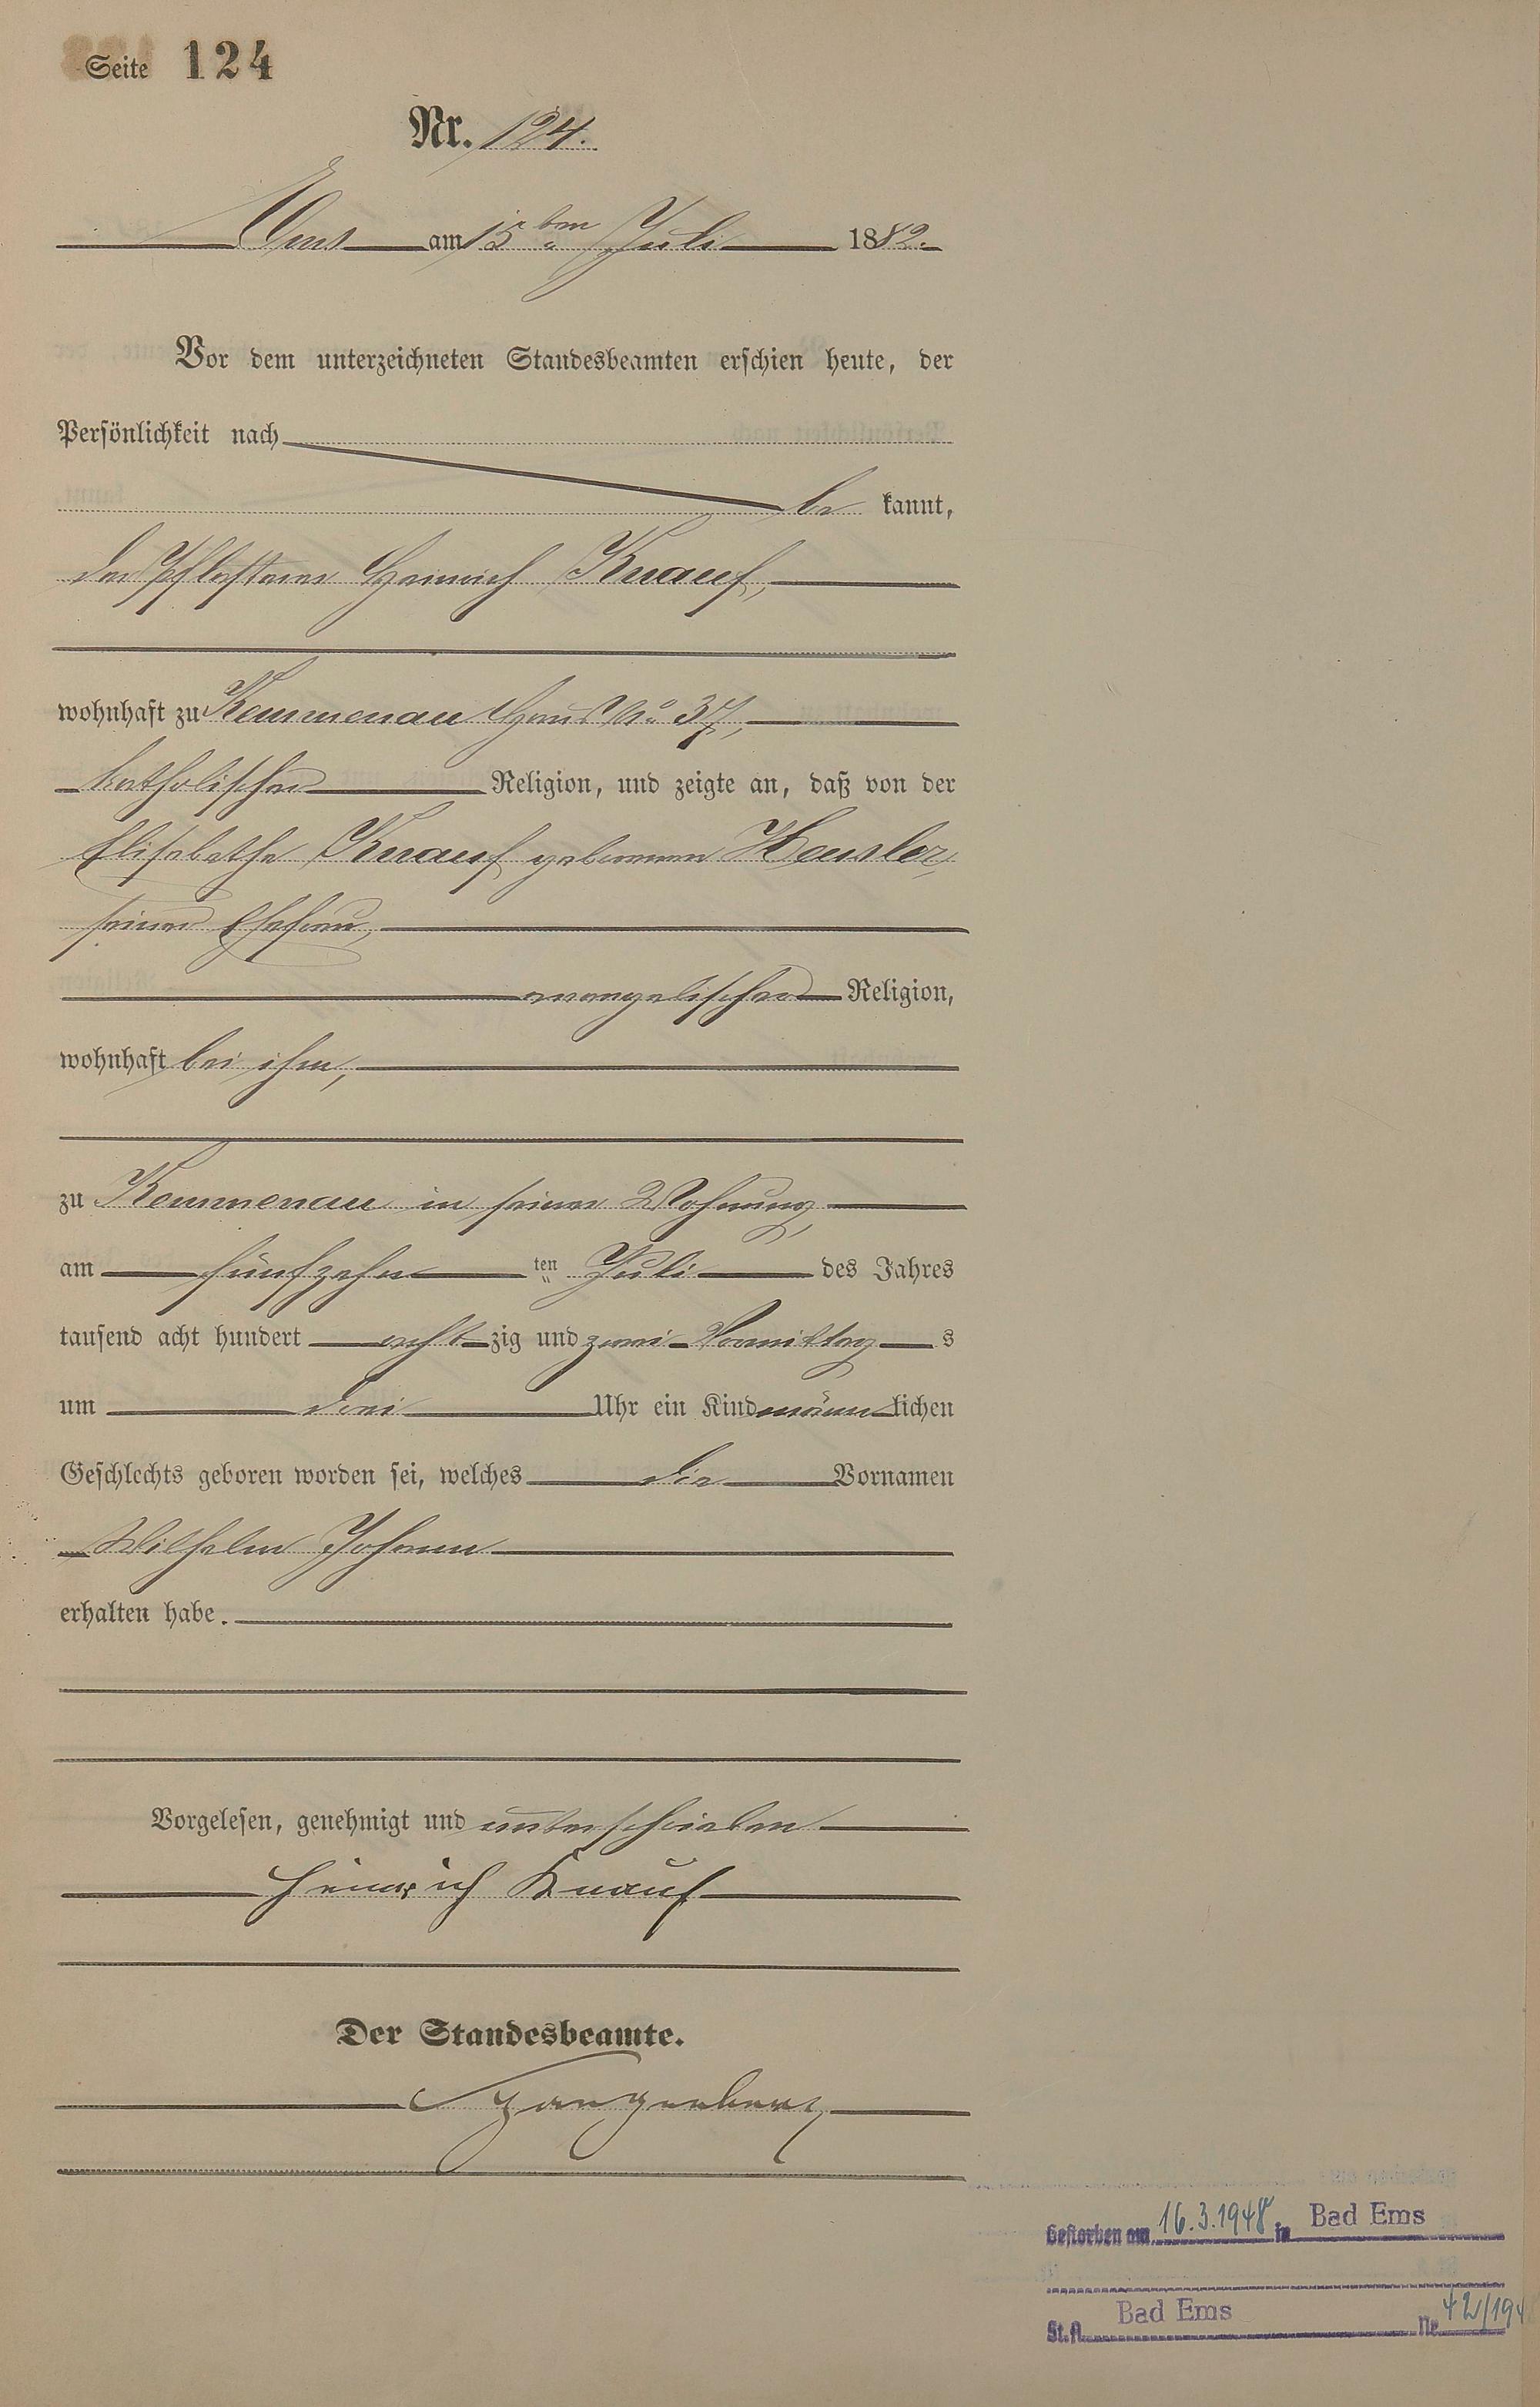 Seite 124
Nr. 124.
Ems am 15ten Juli 1882.
Vor dem unterzeichneten Standesbeamten erschien heute, der
Persönlichkeit nach
be kannt,
der Pflasterer Heinrich Knauf,
wohnhaft zu Kemmenau Haus No 37,
katholischer Religion, und zeigte an, daß von der
Elisabetha Knauf geborenen Hensler,
seiner Ehefrau,
evangelischer Religion,
wohnhaft bei ihm,
zu Kemmenau in seiner Wohnung,
am fünfzehn ten Juli des Jahres
tausend acht hundert acht zig und zwei Vormittag s
um drei Uhr ein Kind männ lichen
Geschlechts geboren worden sei, welches die Vornamen
Wilhelm Johann
erhalten habe.
Vorgelesen, genehmigt und unterschrieben
Heinrich Knauf
Der Standesbeamte.
Gestorben am 16.3.1948 in Bad Ems
St.A. Bad Ems Nr. 42/194